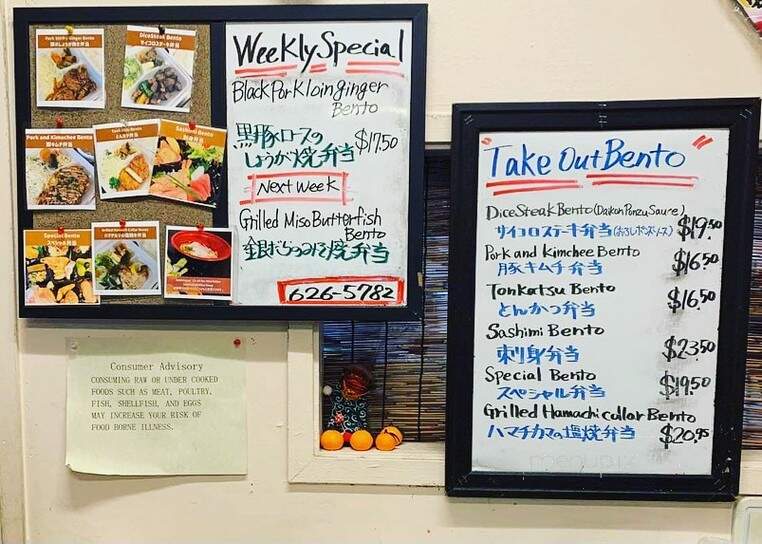 Pork Loin Ginger Bento
豚ロースしょうが焼き弁当
DiceSteak Bento
サイコロステーキ弁当
Pork and Kimchee Bento
豚キムチ弁当
とんかつ弁当
Sashimi Bento
刺身弁当
Special Bento
スペシャル弁当
Grilled Hamachi Collar Bento
ハマチカマの塩焼弁当
Weekly Special
Black Pork loin ginger
Bento
黒豚ロースの
しょうが焼弁当 $17.50
Next Week
Grilled Miso Butterfish
Bento
銀だらのみそ焼弁当
626-5782
Take Out Bento
Dice Steak Bento (Daikon Ponzu Sauce)
サイコロステーキ弁当 (おろしポンズソース) $19.50
Pork and Kimchee Bento
豚キムチ弁当 $16.50
Tonkatsu Bento
とんかつ弁当 $16.50
Sashimi Bento
刺身弁当 $23.50
Special Bento
スペシャル弁当 $19.50
Grilled Hamachi collar Bento
ハマチカマの塩焼弁当 $20.95
Consumer Advisory
CONSUMING RAW OR UNDER COOKED
FOODS SUCH AS MEAT, POULTRY,
FISH, SHELLFISH, AND EGGS
MAY INCREASE YOUR RISK OF
FOOD BORNE ILLNESS.